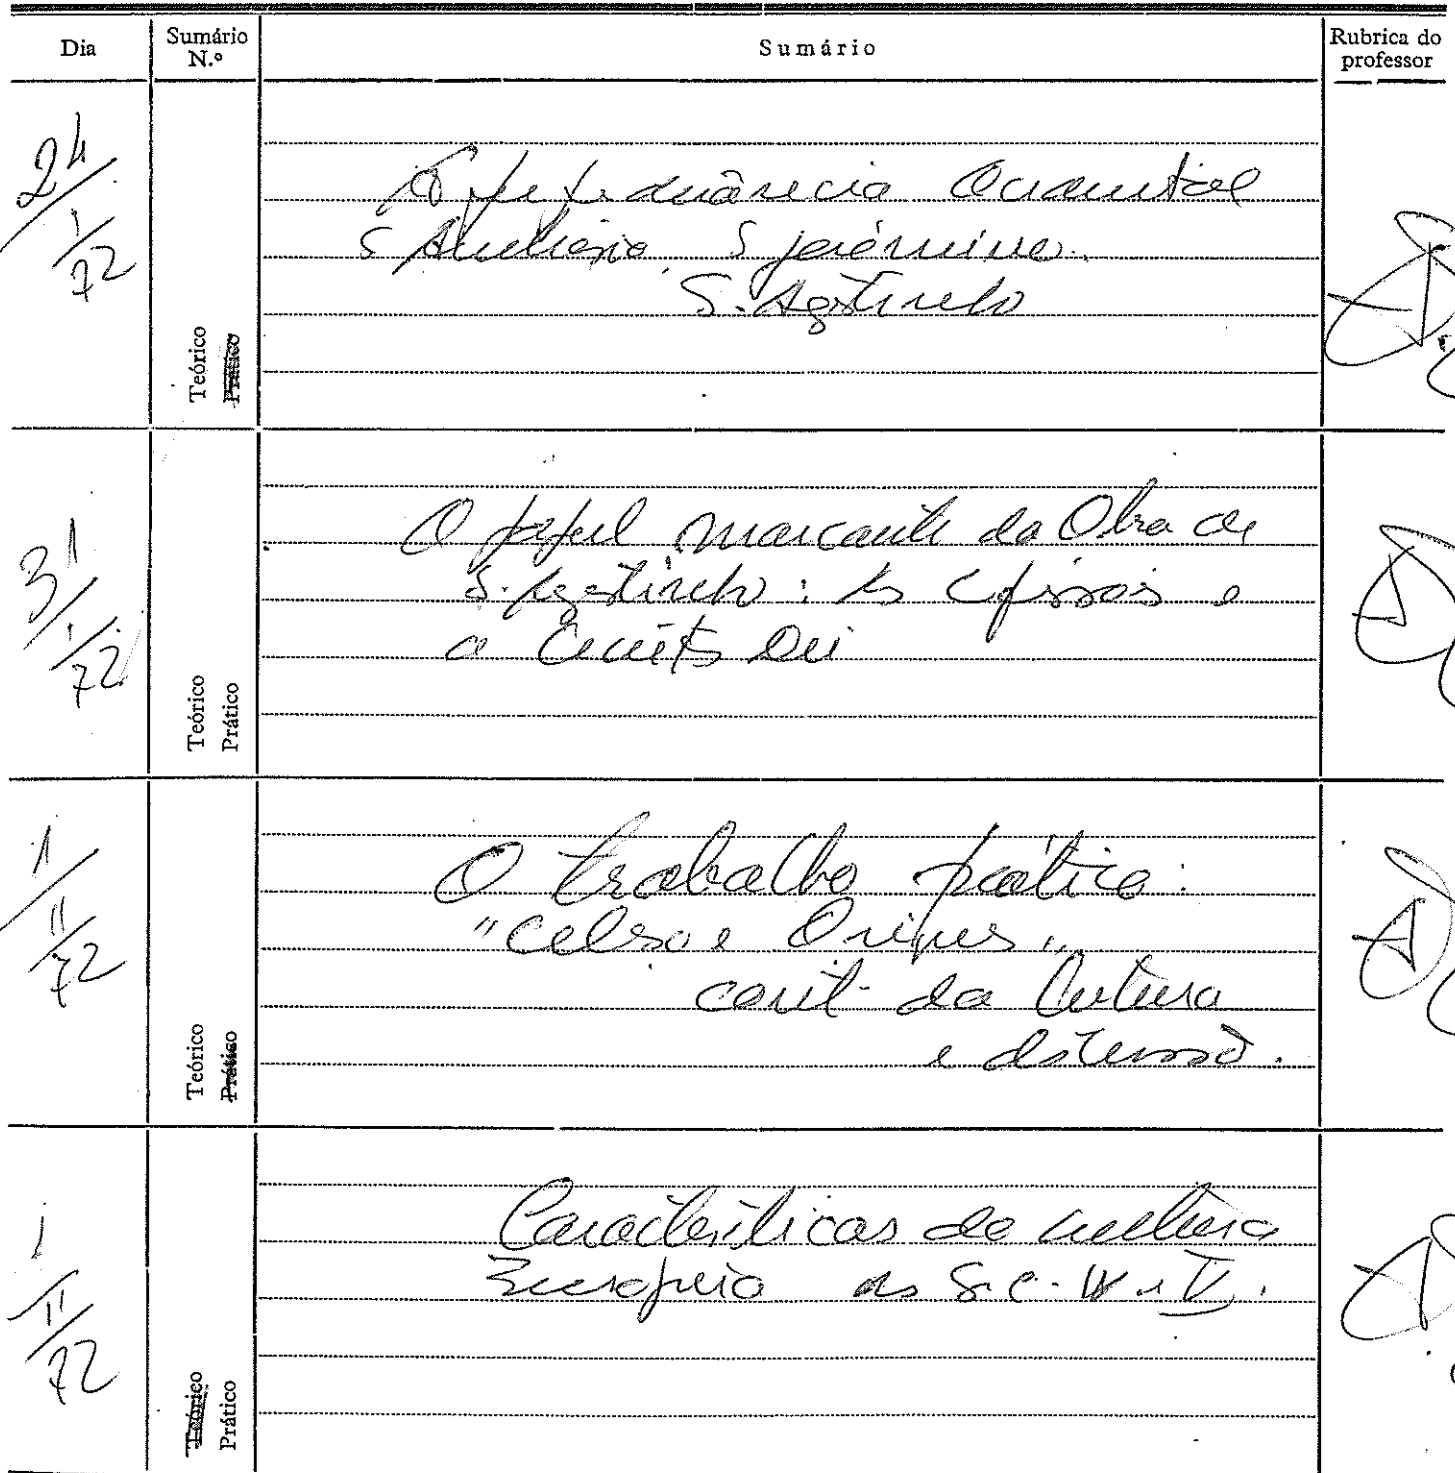 Dia
Sumário N.º
Sumário
Rubrica do professor
24/1/72
Teórico
Prático
Ocidental
S. Jerónimo.
S. Agostinho
31/1/72
Teórico
Prático
O papel marcante da Obra de
S. Agostinho: As Cfissões e
a Civitas Dei
1/II/72
Teórico
Prático
O trabalho prático:
"Celso e Orígenes"
cont. da leitura
1/II/72
Teórico
Prático
Características da cultura
Europeia dos Séc. IV e V.